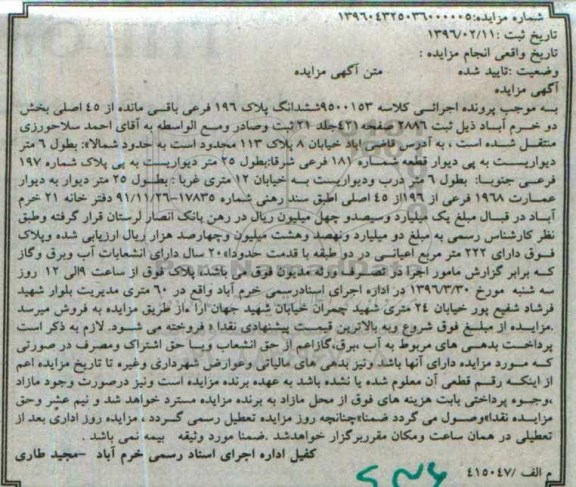 شماره مزایده:۱۳۹۶۰۴۳۲۵۰۳۶۰۰۰۰۰۵
تاریخ ثبت :۱۳۹۶/۰۲/۱۱
تاریخ واقعی انجام مزایده :
وضعیت :تایید شده متن آگهی مزایده
آگهی مزایده
به موجب پرونده اجرائی کلاسه ۹۵۰۰۱۵۳ششدانگ پلاک ۱۹۶ فرعی باقی مانده از ۴۵ اصلی بخش
دو خرم آباد ذیل ثبت ۲۸۸۶ صفحه ۴۳۱جلد ۲۱ ثبت وصادر ومع الواسطه به آقای احمد سلاحورزی
منتقل شده است ، به آدرس قاضی اباد خیابان ۸ پلاک ۱۱۳ محدود است به حدود شمالا: بطول ۶ متر
دیواریست به پی دیوار قطعه شماره ۱۸۱ فرعی شرقا:بطول ۲۵ متر دیواریست به پی پلاک شماره ۱۹۷
فرعی جنوبا: بطول ۶ متر درب ودیواریست به خیابان ۱۲ متری غربا : بطول ۲۵ متر دیوار به دیوار
عمارت ۱۹۶۸ فرعی از ۱۹۶از ۴۵ اصلی اطبق سند رهنی شماره ۱۷۸۳۵-۹۱/۱۱/۲۶ دفتر خانه ۲۱ خرم
آباد در قبال مبلغ یک میلیارد وسیصدو چهل میلیون ریال در رهن بانک انصار لرستان قرار گرفته وطبق
نظر کارشناس رسمی به مبلغ دو میلیارد ونهصد وهشت میلیون وچهارصد هزار ریال ارزیابی شده وپلاک
فوق دارای ۲۲۲ متر مربع اعیانی در دو طبقه با قدمت حدودا۲۰ سال دارای انشعابات آب وبرق وگاز
که برابر گزارش مامور اجرا در تصرف ورثه مدیون فوق می باشد، پلاک فوق از ساعت ۹الی ۱۲ روز
سه شنبه مورخ ۱۳۹۶/۳/۳۰ در اداره اجرای اسنادرسمی خرم آباد واقع در ۶۰ متری مدیریت بلوار شهید
فرشاد شفیع پور خیابان ۲۴ متری شهید چمران خیابان شهید جهان ارا ءاز طریق مزایده به فروش میرسد
.مزایده از مبلغ فوق شروع وبه بالاترین قیمت پیشنهادی نقدا ء فروخته می شود. لازم به ذکر است
پرداخت بدهی های مربوط به آب ،برق،گازاعم از حق انشعاب ویا حق اشتراک ومصرف در صورتی
که مورد مزایده دارای آنها باشد ونیز بدهی های مالیاتی وعوارض شهرداری وغیره تا تاریخ مزایده اعم
از اینکه رقم قطعی آن معلوم شده یا نشده باشد به عهده برنده مزایده است ونیز درصورت وجود مازاد
،وجوه پرداختی بابت هزینه های فوق از محل مازاد به برنده مزایده مسترد خواهد شد و نیم عشر وحق
مزایده نقدا»وصول می گردد ضمنا»چنانچه روز مزایده تعطیل رسمی گردد، مزایده روز اداری بعد از
تعطیلی در همان ساعت ومکان مقرربرگزار خواهدشد .ضمنا مورد وثیقه بیمه نمی باشد .
کفیل اداره اجرای اسناد رسمی خرم آباد –مجید طاری
م الف /۴۱۵۰۴۷